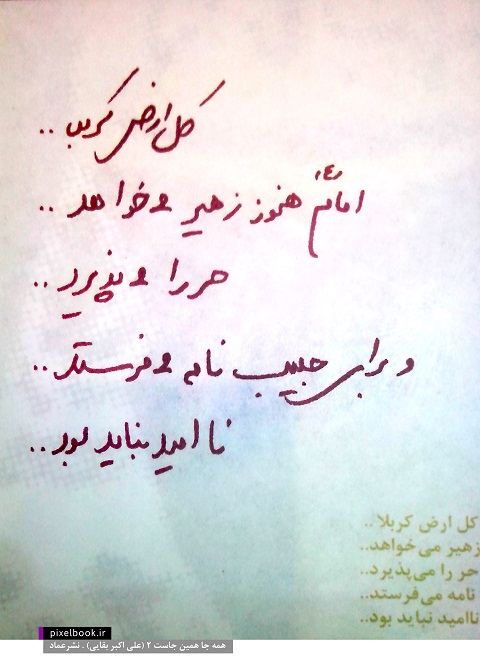 کل ارض کربلا..
امام(ع) هنوز زهیر می‌خواهد..
حر را می‌پذیرد..
و برای حبیب نامه می‌فرستد..
ناامید نباید بود..
کل ارض کربلا..
زهیر می‌خواهد..
حر را می‌پذیرد..
نامه می‌فرستد..
ناامید نباید بود..
pixelbook.ir
همه جا همین جاست ۲ (علی اکبر بقایی) . نشرعماد